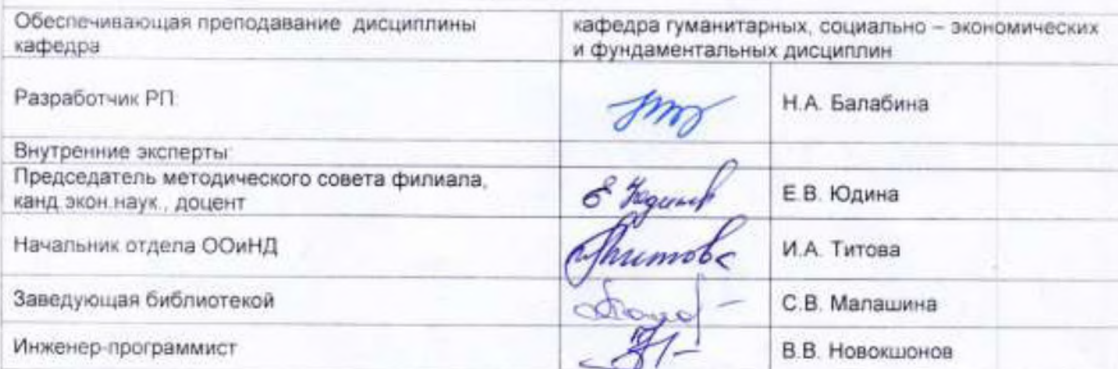 Обеспечивающая преподавание дисциплины
кафедра
кафедра гуманитарных, социально – экономических
и фундаментальных дисциплин
Разработчик РП:
Н.А. Балабина
Внутренние эксперты:
Председатель методического совета филиала,
канд.экон.наук., доцент
Е Юдина
Е.В. Юдина
Начальник отдела ООиНД
Титова
И.А. Титова
Заведующая библиотекой
С.В. Малашина
Инженер-программист
В.В. Новокшонов